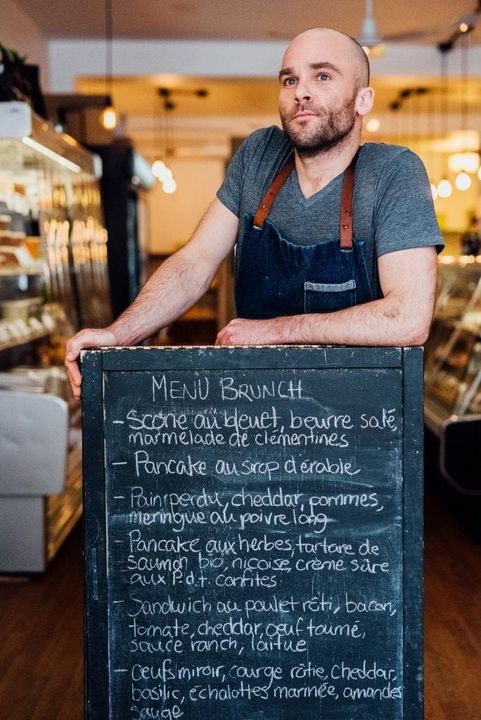 MENU BRUNCH
- Scone au bleuet, beurre salé,
marmelade de clémentines
- Pancake au sirop d'érable
- Pain perdu, cheddar, pommes,
meringue au poivre long
- Pancake aux herbes, tartare de
saumon bio, niçoise, crème sûre
aux p.d.t. confites
- Sandwich au poulet rôti, bacon,
tomate, cheddar, œuf tourné,
sauce ranch, laitue
- Œufs miroir, courge rôtie, cheddar,
basilic, échalottes marinée, amandes
sauge